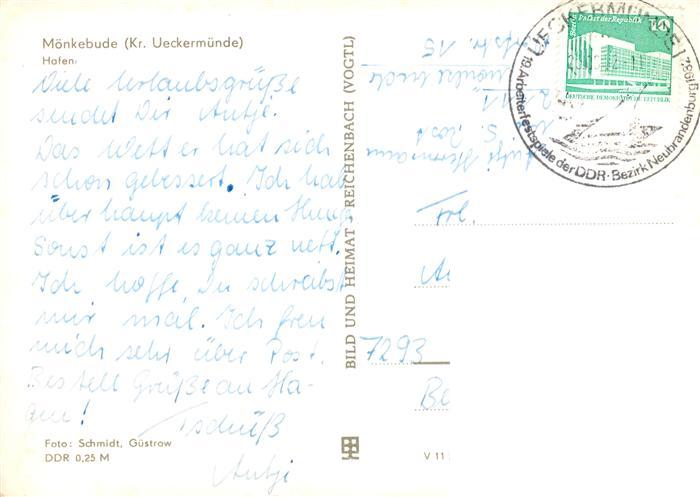 Mönkebude (Kr. Ueckermünde)
Hafen
Viele Urlaubsgrüße
sendet Dir Antje.
Das Wetter hat sich
schon gebessert. Ich hab
überhaupt keinen Hung
Sonst ist es ganz nett.
Ich hoffe, Du schreibst
mir mal. Ich freu
mich sehr über Post.
Bestell Grüße an Ha-
gen!
Tschüß
Antje
Foto: Schmidt, Güstrow
DDR 0,25 M
BILD UND HEIMAT REICHENBACH (VOGTL)
Antje Herrmann
2111
Mönkebude
15
Berlin Palast der Republik
10
DEUTSCHE DEMOKRATISCHE REPUBLIK
UECKERMÜNDE 1
19. Arbeiterfestspiele der DDR · Bezirk Neubrandenburg 1982
Frl.
7293
Be
V 11